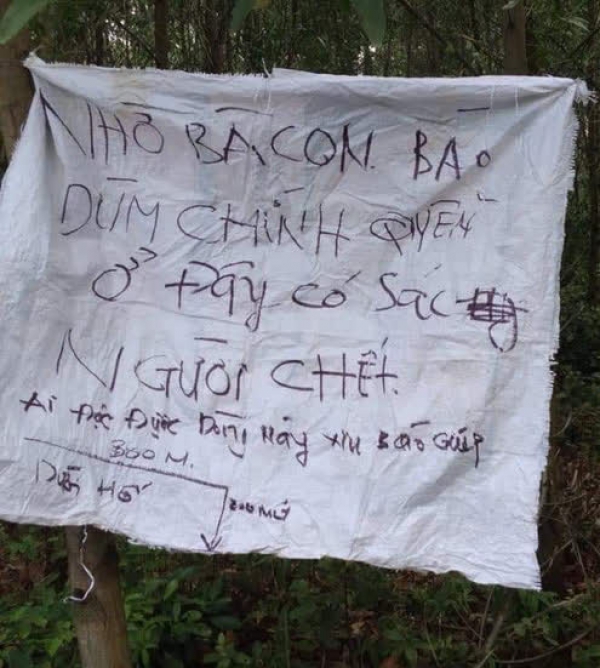 NHỜ BÀ CON. BÁO
DÙM CHÍNH QUYỀN
Ở ĐÂY CÓ SÁC
NGƯỜI CHẾT.
AI ĐỌC ĐƯỢC DÒNG NÀY XIN BÁO GIÚP
300 M.
DƯỚI HỐ
200 M